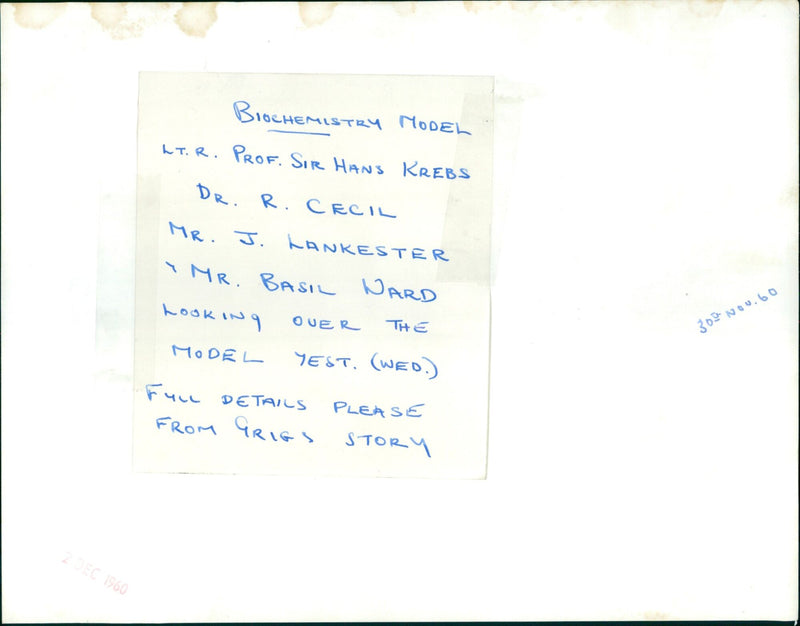 BIOCHEMISTRY MODEL
LT. R. PROF. SIR HANS KREBS
DR. R. CECIL
MR. J. LANKESTER
& MR. BASIL WARD
LOOKING OVER THE
MODEL YEST. (WED.)
FULL DETAILS PLEASE
FROM GRIGS STORY
30th NOV. 60
2 DEC 1960